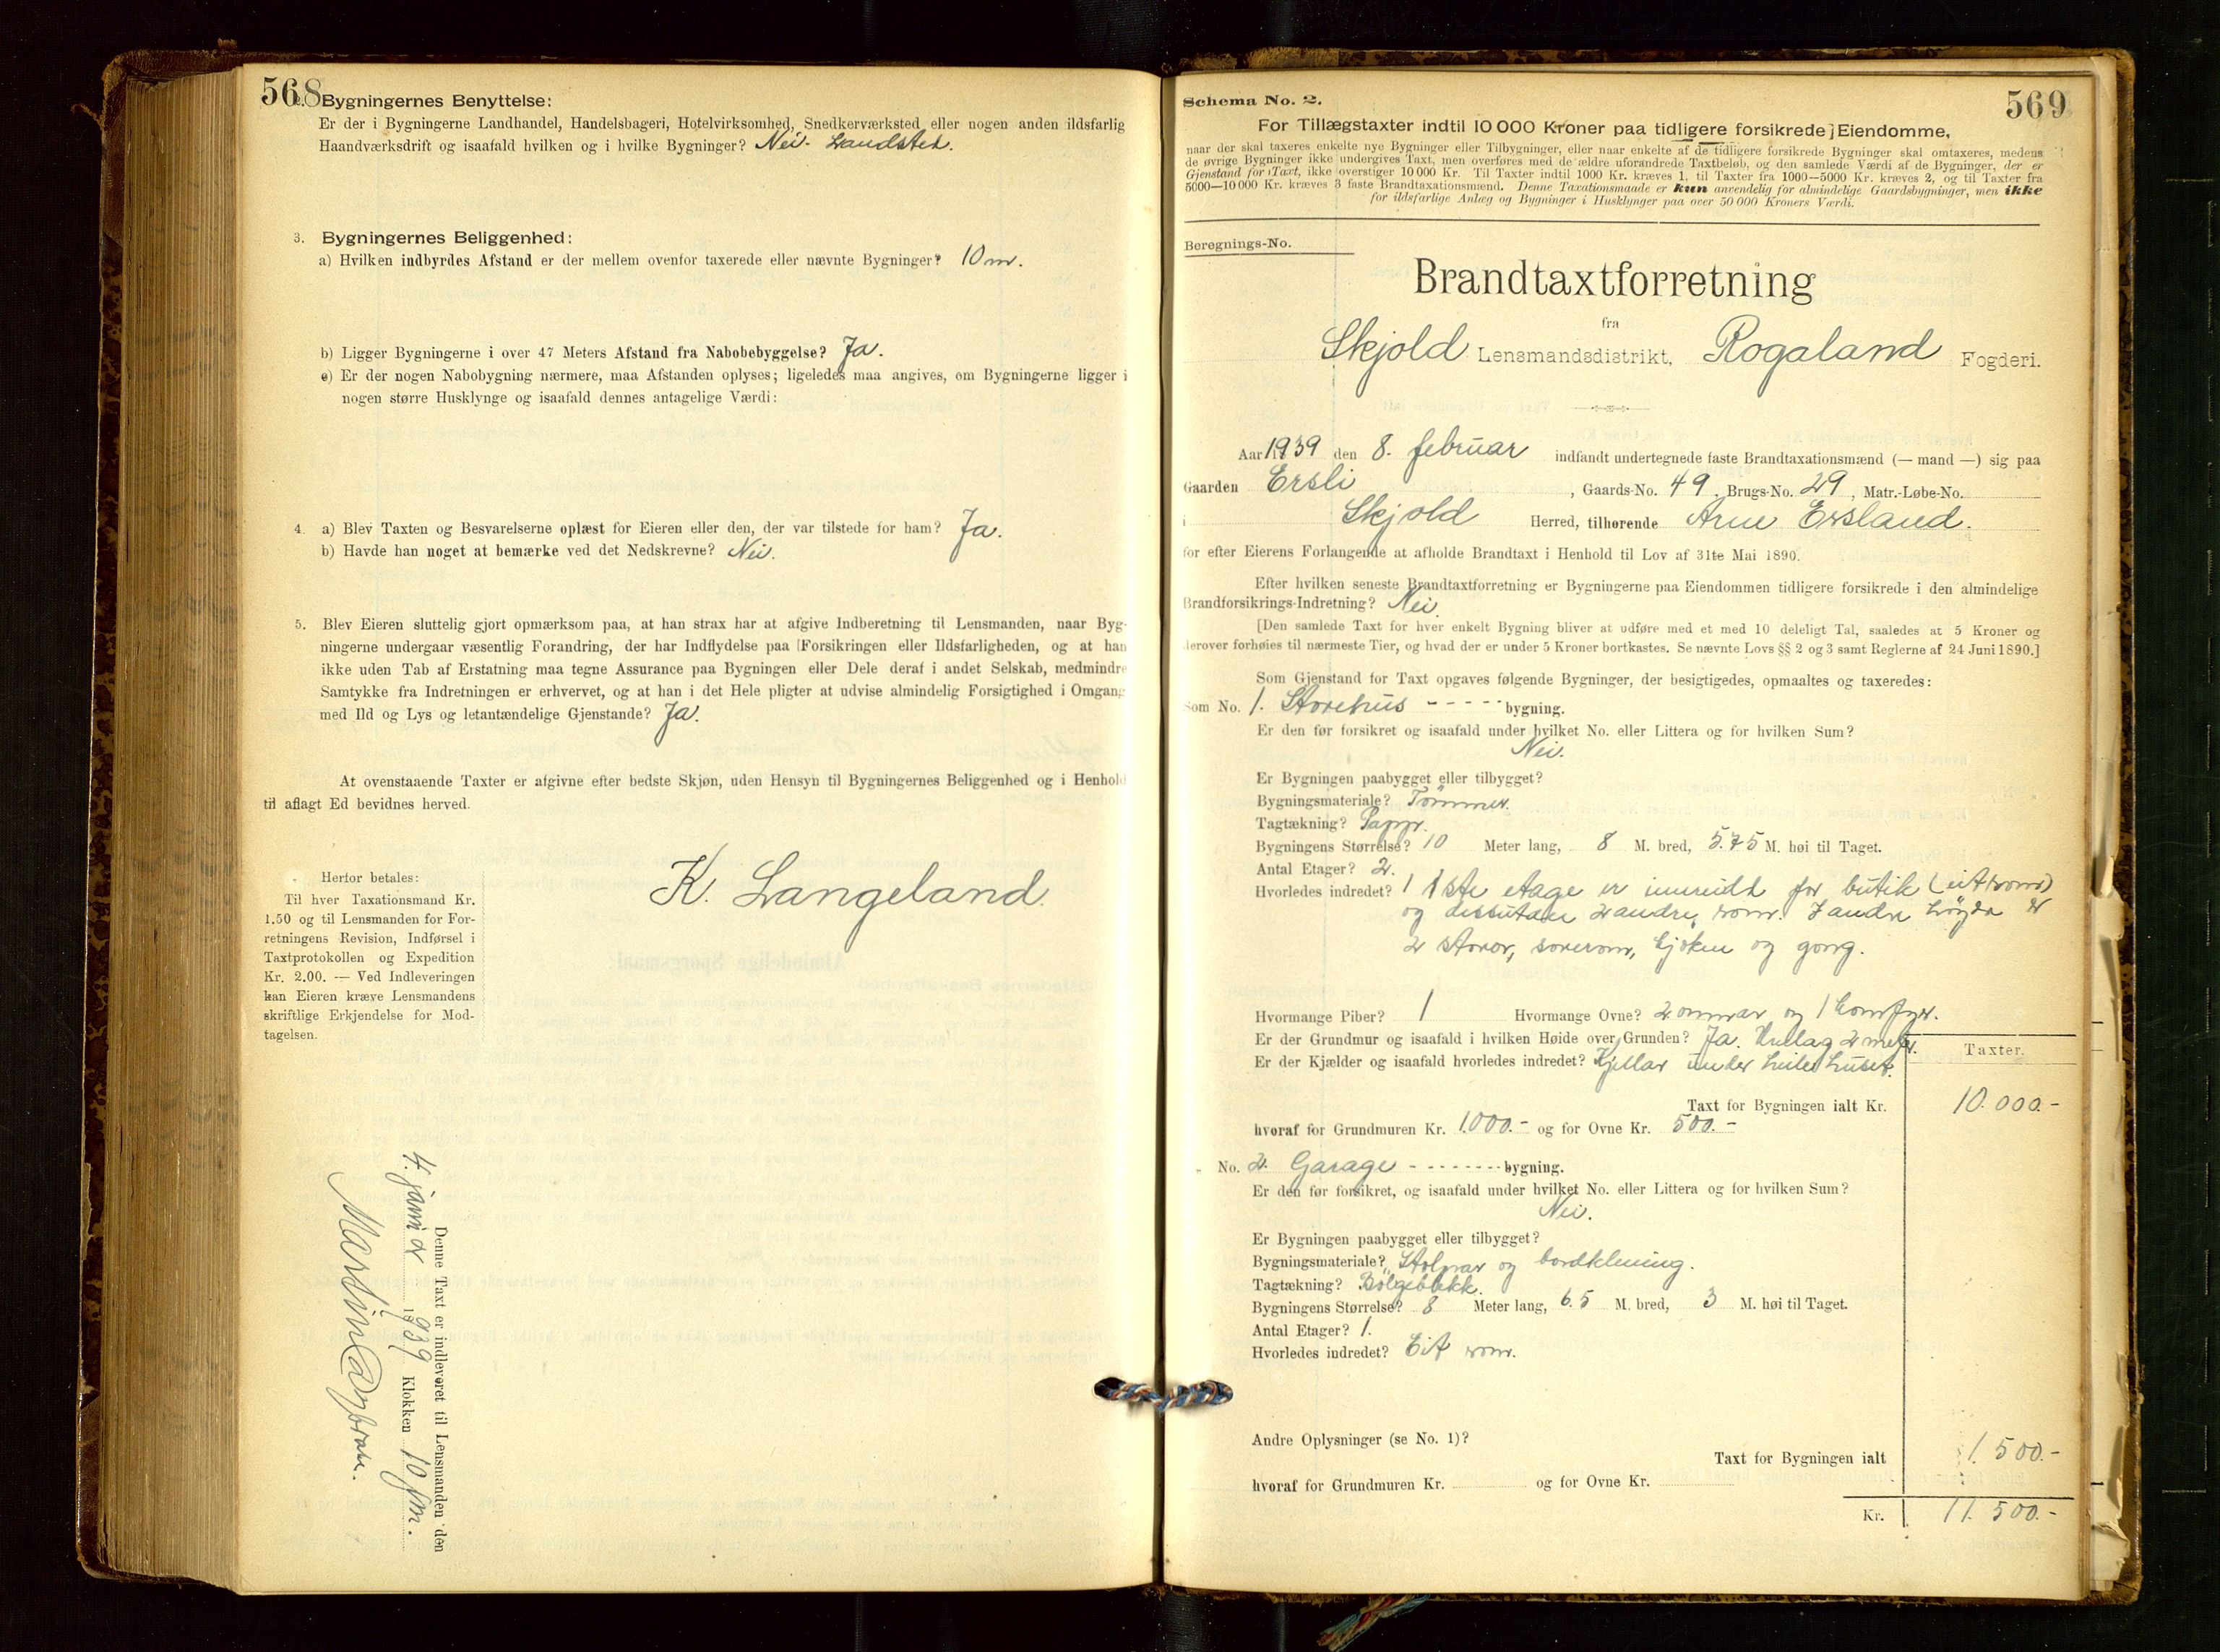 568
2. Bygningernes Benyttelse:
Er der i Bygningerne Landhandel, Handelsbageri, Hotelvirksomhed, Snedkerværksted eller nogen anden ildsfarlig
Haandværksdrift og isaafald hvilken og i hvilke Bygninger? Nei. Landsted.
3. Bygningernes Beliggenhed:
a) Hvilken indbyrdes Afstand er der mellem ovenfor taxerede eller nævnte Bygninger? 10 m.
b) Ligger Bygningerne i over 47 Meters Afstand fra Nabobebyggelse? Ja.
c) Er der nogen Nabobygning nærmere, maa Afstanden oplyses; ligeledes maa angives, om Bygningerne ligger i
nogen større Husklynge og isaafald dennes antagelige Værdi:
4. a) Blev Taxten og Besvarelserne oplæst for Eieren eller den, der var tilstede for ham? Ja.
b) Havde han noget at bemærke ved det Nedskrevne? Nei.
5. Blev Eieren sluttelig gjort opmærksom paa, at han strax har at afgive Indberetning til Lensmanden, naar Byg-
ningerne undergaar væsentlig Forandring, der har Indflydelse paa Forsikringen eller Ildsfarligheden, og at han
ikke uden Tab af Erstatning maa tegne Assurance paa Bygningen eller Dele deraf i andet Selskab, medmindre
Samtykke fra Indretningen er erhvervet, og at han i det Hele pligter at udvise almindelig Forsigtighed i Omgang
med Ild og Lys og letantændelige Gjenstande? Ja.
At ovenstaaende Taxter er afgivne efter bedste Skjøn, uden Hensyn til Bygningernes Beliggenhed og i Henhold
til aflagt Ed bevidnes herved.
K. Langeland
Herfor betales:
Til hver Taxationsmand Kr.
1.50 og til Lensmanden for For-
retningens Revision, Indførsel i
Taxtprotokollen og Expedition
Kr. 2.00. — Ved Indleveringen
kan Eieren kræve Lensmandens
skriftlige Erkjendelse for Mod-
tagelsen.
Denne Taxt er indleveret til Lensmanden den
4. januar 1939 Klokken 10 fm.
Schema No. 2.
569
For Tillægstaxter indtil 10 000 Kroner paa tidligere forsikrede Eiendomme,
naar der skal taxeres enkelte nye Bygninger eller Tilbygninger, eller naar enkelte af de tidligere forsikrede Bygninger skal omtaxeres, medens
de øvrige Bygninger ikke undergives Taxt, men overføres med de ældre uforandrede Taxtbeløb, og den samlede Værdi af de Bygninger, der er
Gjenstand for Taxt, ikke overstiger 10 000 Kr. Til Taxter indtil 1000 Kr. kræves 1, til Taxter fra 1000—5000 Kr. kræves 2, og til Taxter fra
5000—10 000 Kr. kræves 3 faste Brandtaxationsmænd. Denne Taxationsmaade er kun anvendelig for almindelige Gaardsbygninger, men ikke
for ildsfarlige Anlæg og Bygninger i Husklynger paa over 50 000 Kroners Værdi.
Beregnings-No.
Brandtaxtforretning
fra
Skjold Lensmandsdistrikt, Rogaland Fogderi.
Aar 1939 den 8. februar indfandt undertegnede faste Brandtaxationsmænd (— mand —) sig paa
Gaarden Ersli, Gaards-No. 49, Brugs-No. 29, Matr.-Løbe-No.
i Skjold Herred, tilhørende Arne Ersland.
for efter Eierens Forlangende at afholde Brandtaxt i Henhold til Lov af 31te Mai 1890.
Efter hvilken seneste Brandtaxtforretning er Bygningerne paa Eiendommen tidligere forsikrede i den almindelige
Brandforsikrings-Indretning? Nei
[Den samlede Taxt for hver enkelt Bygning bliver at udføre med et med 10 deleligt Tal, saaledes at 5 Kroner og
derover forhøies til nærmeste Tier, og hvad der er under 5 Kroner bortkastes. Se nævnte Lovs §§ 2 og 3 samt Reglerne af 24 Juni 1890.]
Som Gjenstand for Taxt opgaves følgende Bygninger, der besigtigedes, opmaaltes og taxeredes:
Som No. 1. Storehus - - - - - bygning.
Er den før forsikret og isaafald under hvilket No. eller Littera og for hvilken Sum?
Nei.
Er Bygningen paabygget eller tilbygget?
Bygningsmateriale? Tømmer.
Tagtækning? Papp.
Bygningens Størrelse? 10 Meter lang, 8 M. bred, 5.75 M. høi til Taget.
Antal Etager? 2.
Hvorledes indreder? I 1ste etage er innreidt for butik (eit rom)
og dessutan 2 andre rom. I andre høgda er
2 stover, soverom, kjøken og gong.
Hvormange Piber? 1 Hvormange Ovne? 2 omnar og 1 komfyr.
Er der Grundmur og isaafald i hvilken Høide over Grunden? Ja. 2 meter.
Er der Kjælder og isaafald hvorledes indredet? Kjellar under heile huset.
Taxter.
Taxt for Bygningen ialt Kr. 10.000.-
hvoraf for Grundmuren Kr. 1.000.- og for Ovne Kr. 500.-
„ No. 2. Garage - - - - - - - - bygning.
Er den før forsikret, og isaafald under hvilket No. eller Littera og for hvilken Sum?
Nei.
Er Bygningen paabygget eller tilbygget?
Bygningsmateriale? Stolpar og bordkledning.
Tagtækning? Bølgeblekk.
Bygningens Størrelse? 8 Meter lang, 6.5 M. bred, 3 M. høi til Taget.
Antal Etager? 1.
Hvorledes indredet? Eit rom.
Andre Oplysninger (se No. 1)?
Taxt for Bygningen ialt 1.500.-
hvoraf for Grundmuren Kr. og for Ovne Kr.
Kr. 11.500.-